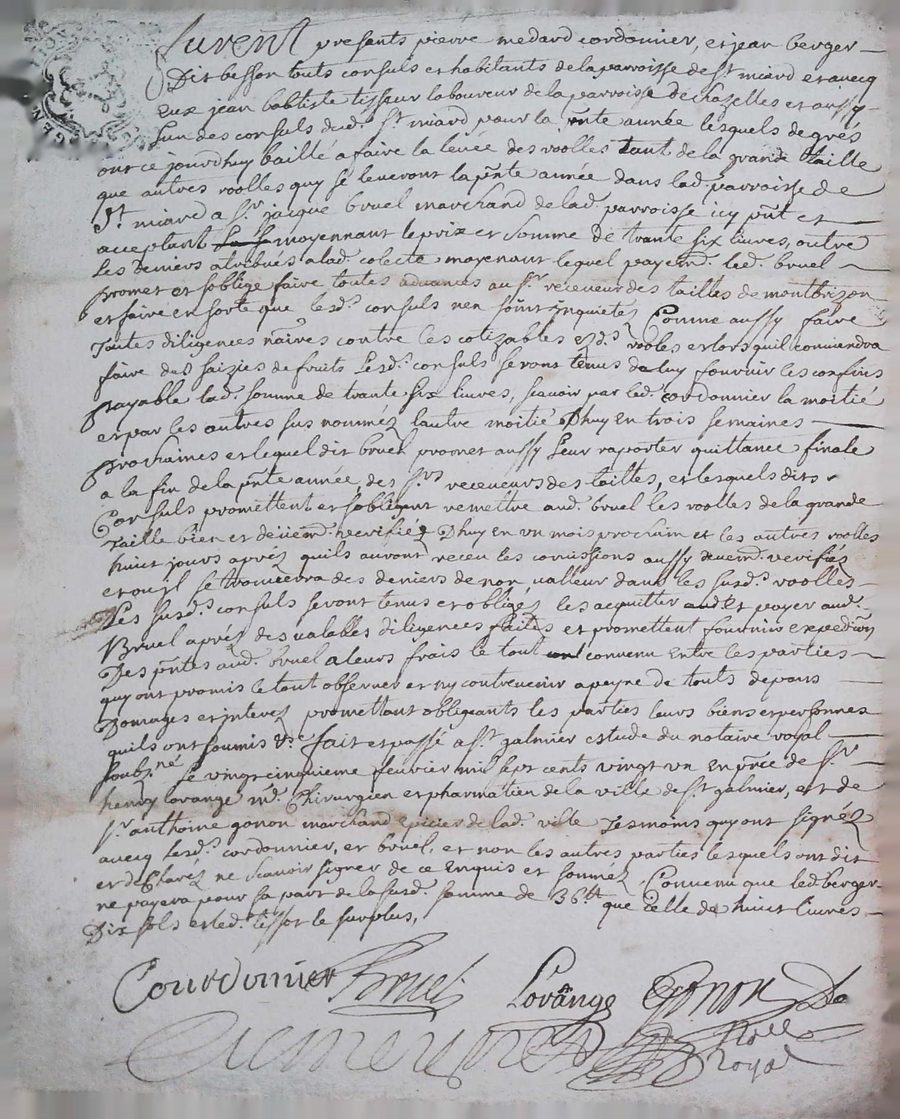 furent presents pierre medard cordonnier, et jean berger
Dit besson touts consuls et habitants de la parroisse de st. miard et avecq
eux jean babtiste tisseur laboureur de la parroisse de chazelles et aussy
lun des consuls dud. st. miard pour la pnte année lesquels de grés
ont ce jourdhuy baillé a faire la levée des roolles tant de la grande taille
que autres roolles quy se leveront la pnte année dans lad. parroisse de
St. miard a sr. jacque bruel marchand de lad. parroisse icy pnt et
acceptant moyennant le prix et somme de trante six livres, outre
les deniers atribués a lad. colecte moyenant lequel payemt. led. bruel
promet et soblige faire toutes advances au sr. receveur des tailles de montbrizon
et faire en sorte que lesd. consuls nen soint Inquietés Comme aussy faire
toutes diligences nres contre les cotizables esd. roolles et lors quil conviendra
faire des saizies de fruits lesd. consuls seront tenus de luy fournir les confins
payable lad. somme de trante six livres, scavoir par led. cordonnier la moitié
et par les autres sus nommés lautre moitié Dhuy en trois semaines
prochaines et lequel dit bruel promet aussy leur raporter quittance finale
a la fin de la pnte année des srs receveurs des tailles, et lesquels dits
Consuls promettent et sobligent remettre aud. bruel les roolles de la grande
taille bien et deüemt. verifiés Dhuy en un mois prochain et les autres roolles
huict jours aprés quils auront receu les comissions aussy deuemt. verifiés
et ou il se trouvera des deniers de non valleur dans les susd. roolles
Les susd. consuls seront tenus et obligés les acquitter et payer aud.
Bruel aprés des valables diligences faites et promettent fournir expedion
Des pntes aud. bruel a leurs frais le tout convenu entre les parties
quy ont promis le tout observer et ny contrevenir a peyne de touts depans
Domages et interes promettant obligeants les parties leurs biens et personnes
quils ont soumis &c. fait et passé a st. galmier estude du notaire royal
soubzne. le vingt cinquieme fevrier mil sept cents vingt un en pnce de sr.
henry lovange md. Chirurgien et pharmatien de la ville de st. galmier, et de
sr. anthoine gonon marchand epicier de lad. ville tesmoins quy ont signés
avecq lesd. cordonnier, et bruel, et non les autres parties lesquels ont dit
et declarés ne scavoir signer de ce enquis et sommés Convenu que led. berger
ne payera pour sa part de la susd. somme de 36 lt que celle de huict livres
Dix sols et led. tissot le surplus,
Courdonnier Bruel Lovange Gonon
Royal